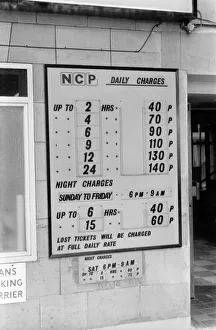 NCP DAILY CHARGES
UP TO 2 HRS 40 P
" " 4 " 70 P
" " 6 " 90 P
" " 9 " 110 P
" " 12 " 130 P
" " 24 " 140 P
NIGHT CHARGES
SUNDAY TO FRIDAY - 6 PM - 9 AM
UP TO 6 HRS 40 P
" " 15 " 60 P
LOST TICKETS WILL BE CHARGED
AT FULL DAILY RATE
NIGHT CHARGES
SAT 6 PM - 9 AM
UP TO